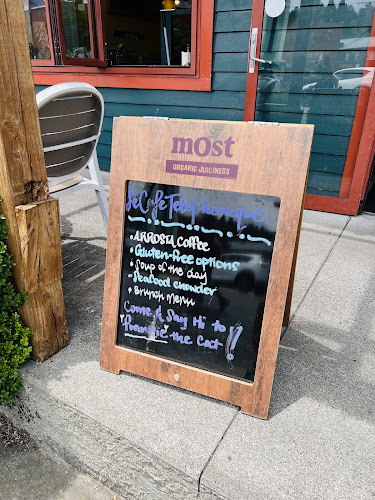 mOst
ORGANIC JUICINESS
Le Cafe Telephonique
• ARROSTA Coffee
• Gluten-free options
• Soup of the day
- Seafood chowder
• Brunch Menu
Come & Say Hi to
the Cat!